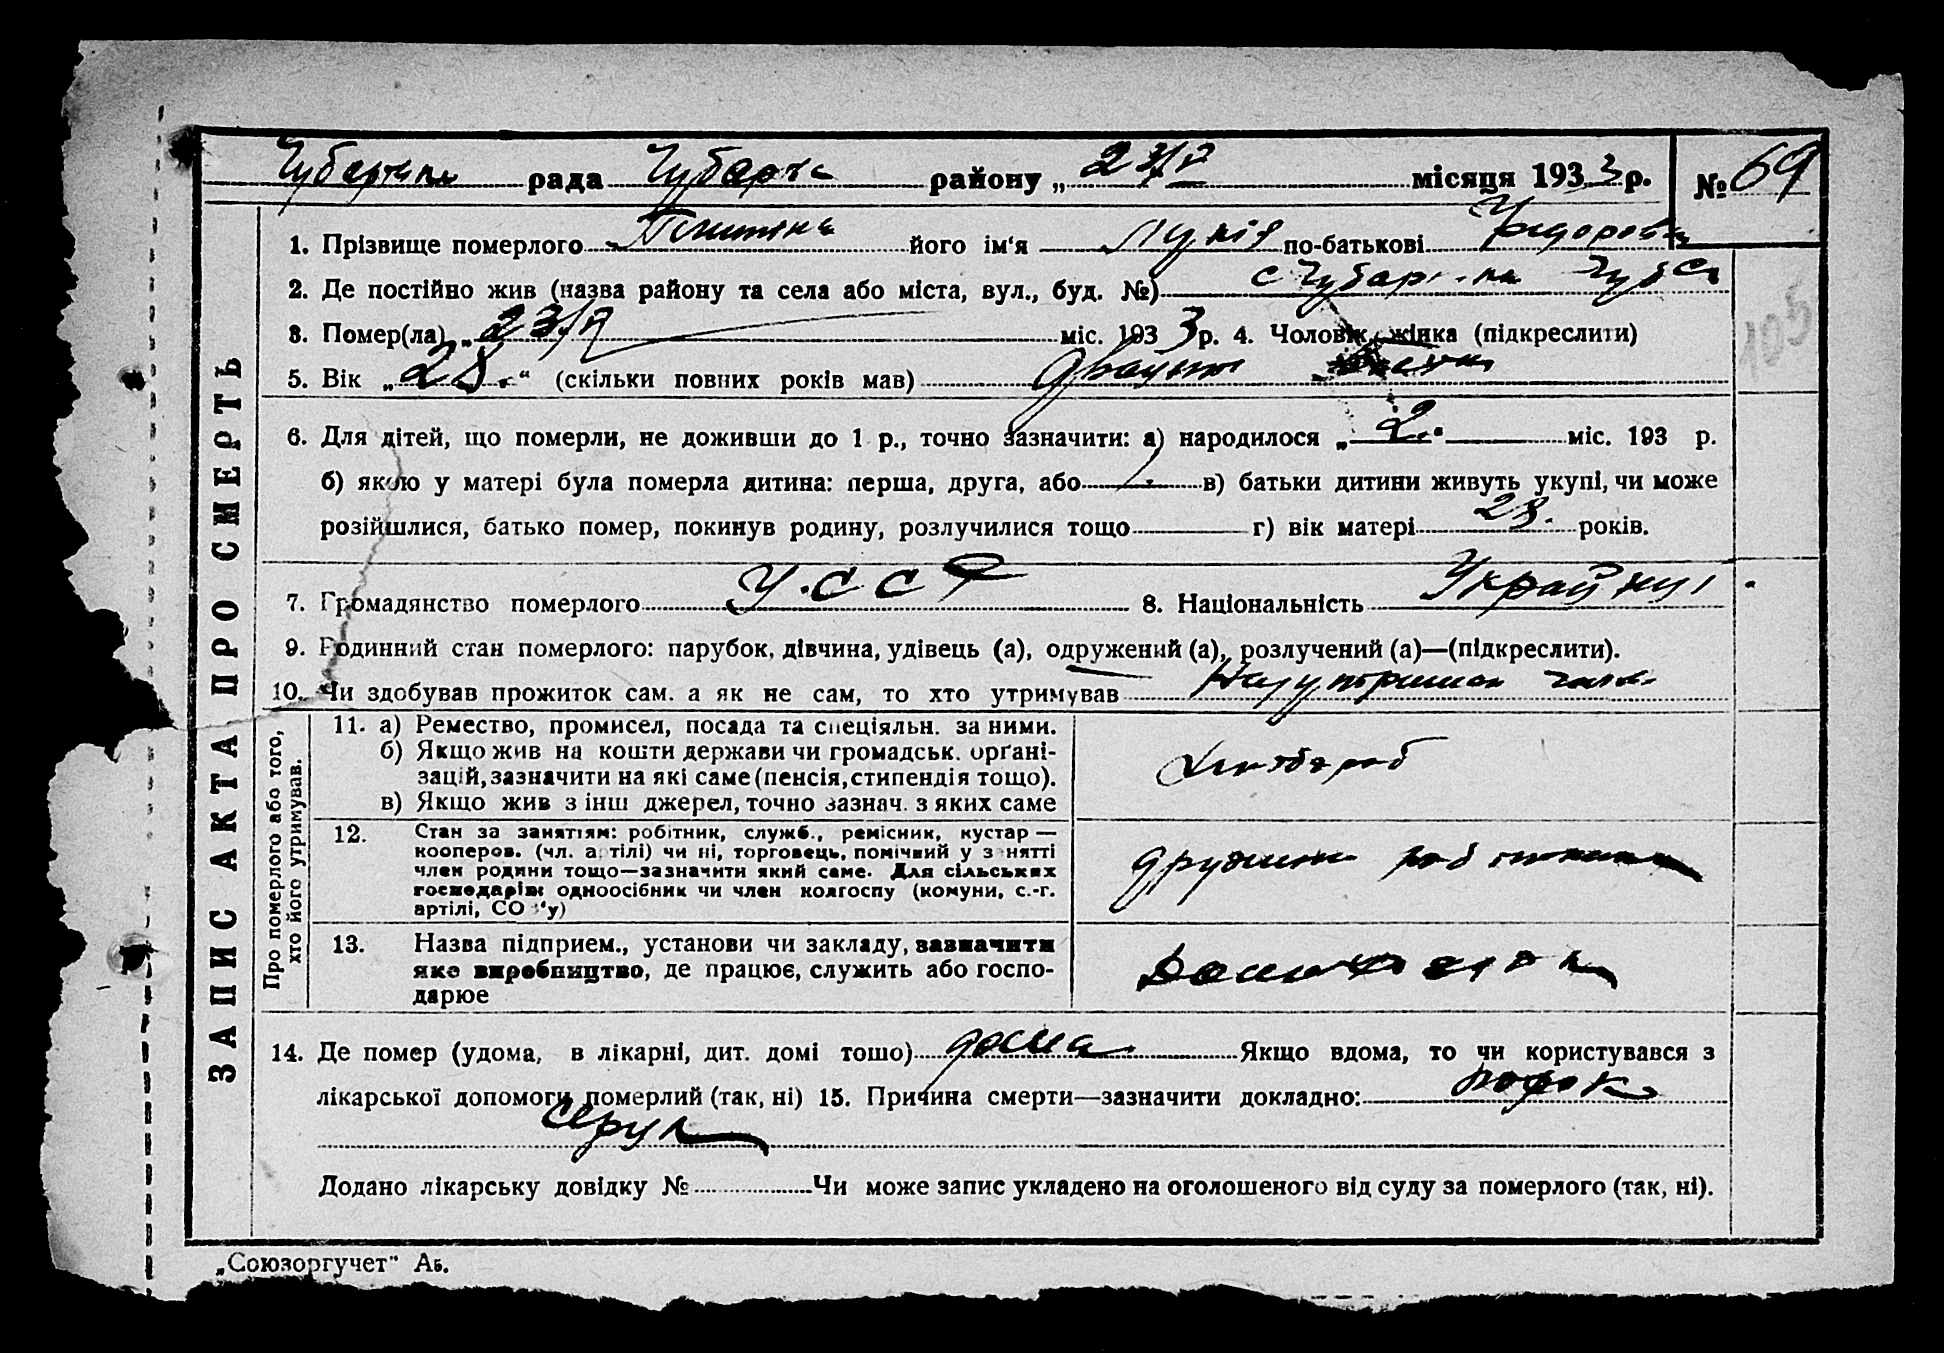 Чубарська рада Чубарск району „23/V місяця 1933 р. № 69
ЗАПИС АКТА ПРО СМЕРТЬ
1. Прізвище померлого його ім'я Лукія по-батькові
2. Де постійно жив (назва району та села або міста, вул., буд. №) с Чубар
3. Помер(ла) „23/V міс. 1933 р. 4. Чоловік, жінка (підкреслити)
5. Вік „28." (скільки повних років мав)
6. Для дітей, що померли, не доживши до 1 р., точно зазначити: а) народилося „2" міс. 193 р.
б) якою у матері була померла дитина: перша, друга, або в) батьки дитини живуть укупі, чи може
розійшлися, батько помер, покинув родину, розлучилися тощо г) вік матері 28. років.
7. Громадянство померлого У.С.С.Р 8. Національність
9. Родинний стан померлого: парубок, дівчина, удівець (а), одружений (а), розлучений (а)—(підкреслити).
10. Чи здобував прожиток сам. а як не сам, то хто утримував На утриман
Про померлого або того, хто його утримував.
11. а) Ремество, промисел, посада та спеціяльн. за ними.
б) Якщо жив на кошти держави чи громадськ. орґані-
зацій, зазначити на які саме (пенсія, стипендія тощо).
в) Якщо жив з інш джерел, точно зазнач. з яких саме
12. Стан за заняттям: робітник, служб., ремісник, кустар —
кооперов. (чл. артілі) чи ні, торговець, помічний у занятті
член родини тощо—зазначити який саме. Для сільських
господарів: одноосібник чи член колгоспу (комуни, с.-г.
артілі, СО з'у)
дружина
13. Назва підприєм., установи чи закладу, зазначити
яке виробництво, де працює, служить або госпо-
дарює
14. Де помер (удома, в лікарні, дит. домі тошо) дома. Якщо вдома, то чи користувався з
лікарської допомоги померлий (так, ні) 15. Причина смерти—зазначити докладно: порок
серця
Додано лікарську довідку № Чи може запис укладено на оголошеного від суду за померлого (так, ні).
„Союзоргучет" Аб.